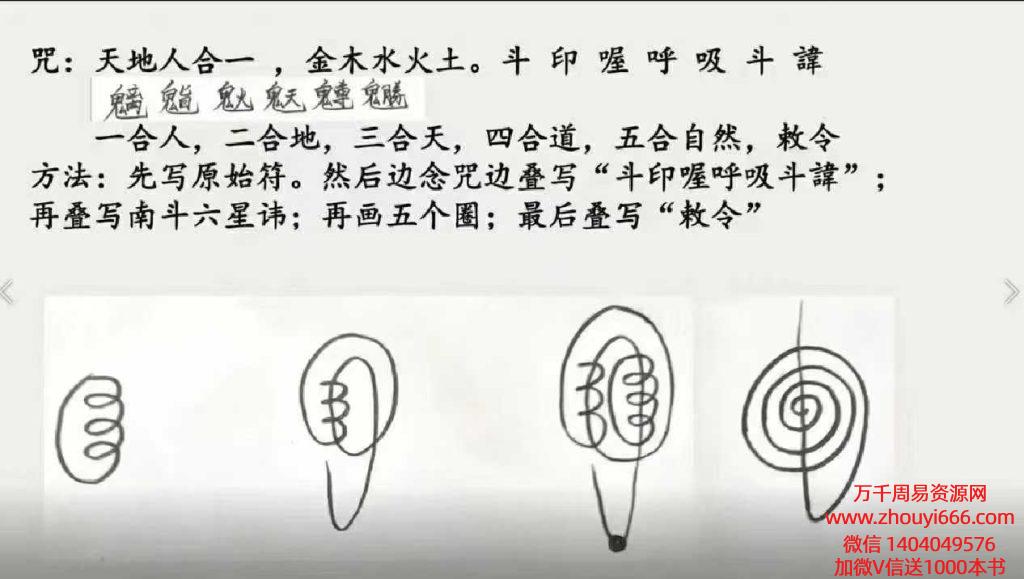 咒：天地人合一，金木水火土。斗 印 喔 呼 吸 斗 諱
一合人，二合地，三合天，四合道，五合自然，敕令
方法：先写原始符。然后边念咒边叠写“斗印喔呼吸斗諱”；
再叠写南斗六星讳；再画五个圈；最后叠写“敕令”
万千周易资源网
www.zhouyi666.com
微信 1404049576
加微V信送1000本书